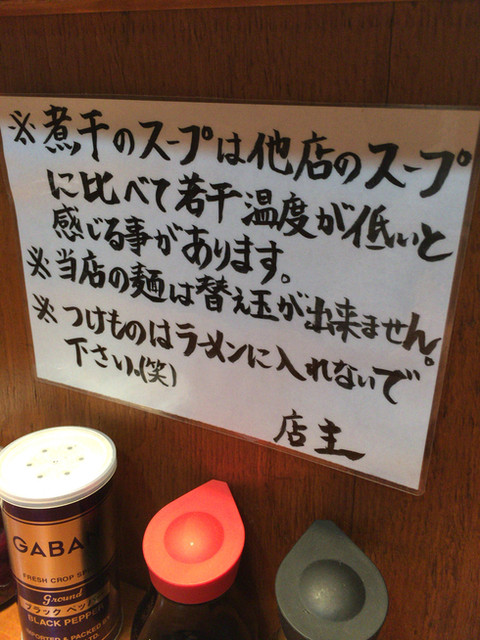 ※煮干のスープは他店のスープ
に比べて若干温度が低いと
感じる事があります。
※当店の麺は替え玉が出来ません。
※つけものはラーメンに入れないで
下さい。(笑)
店主
GABA
FRESH CROP
Ground
ブラックペッ
BLACK PEPPER
PACKED